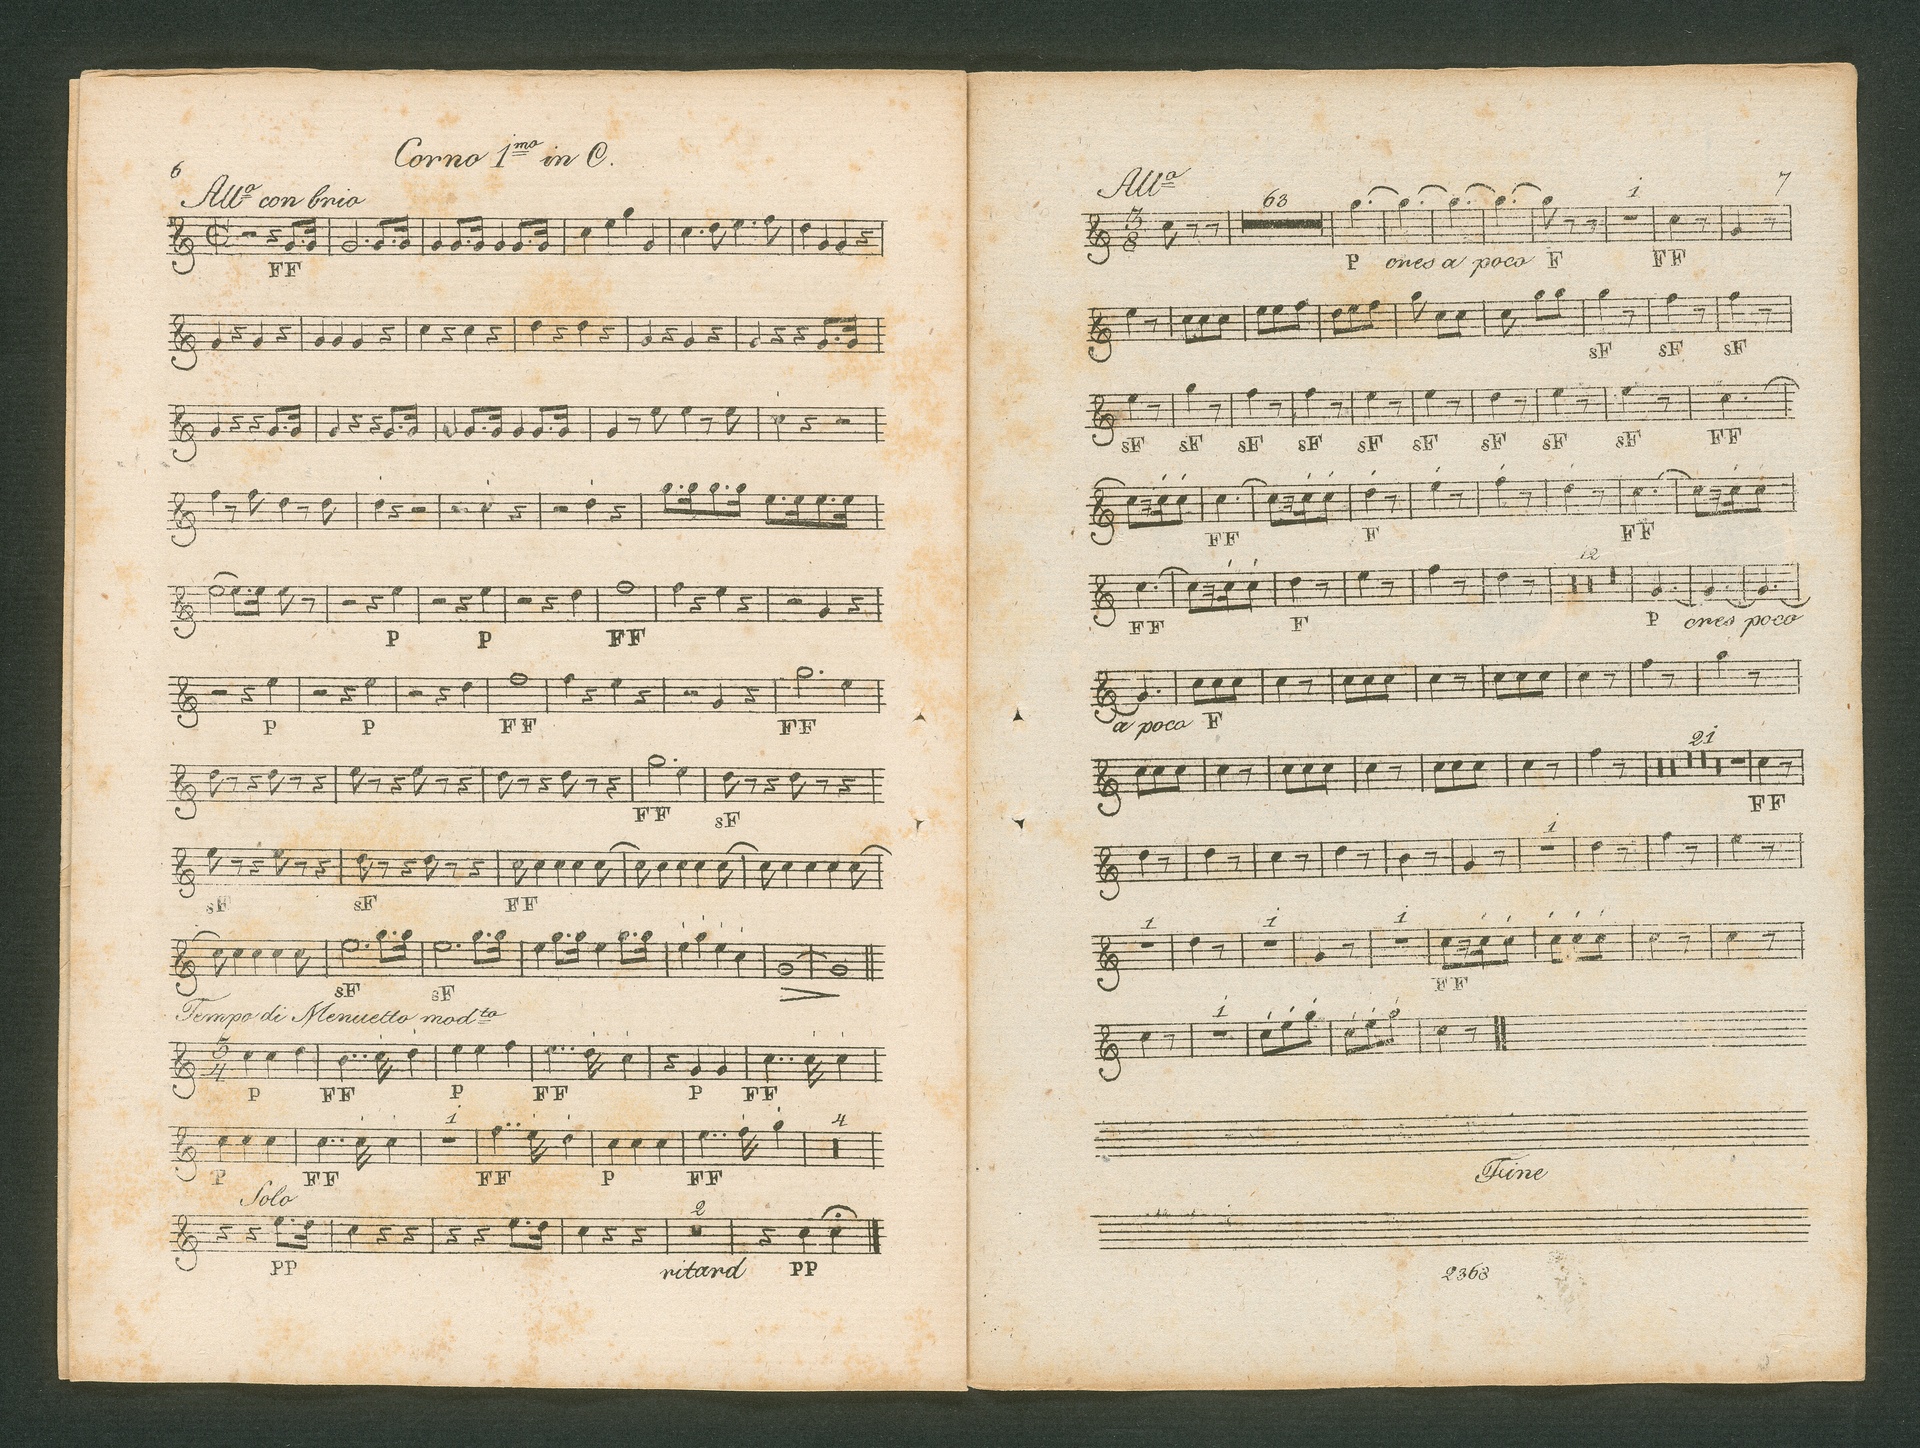 6
Corno 1mo in C.
Allo con brio
FF
P P FF
P P FF FF
FF sF
sF sF FF
sF sF
Tempo di Menuetto modto
3/4
P FF P FF P FF
1 4
P FF FF P FF
Solo
2
PP ritard PP
7
Allo
3/8
63 1
P cres a poco F FF
sF sF sF
sF sF sF sF sF sF sF sF sF FF
FF F FF
12
FF F P cres poco
a poco F
21
FF
1
1 1 1
FF
1
Fine
2363